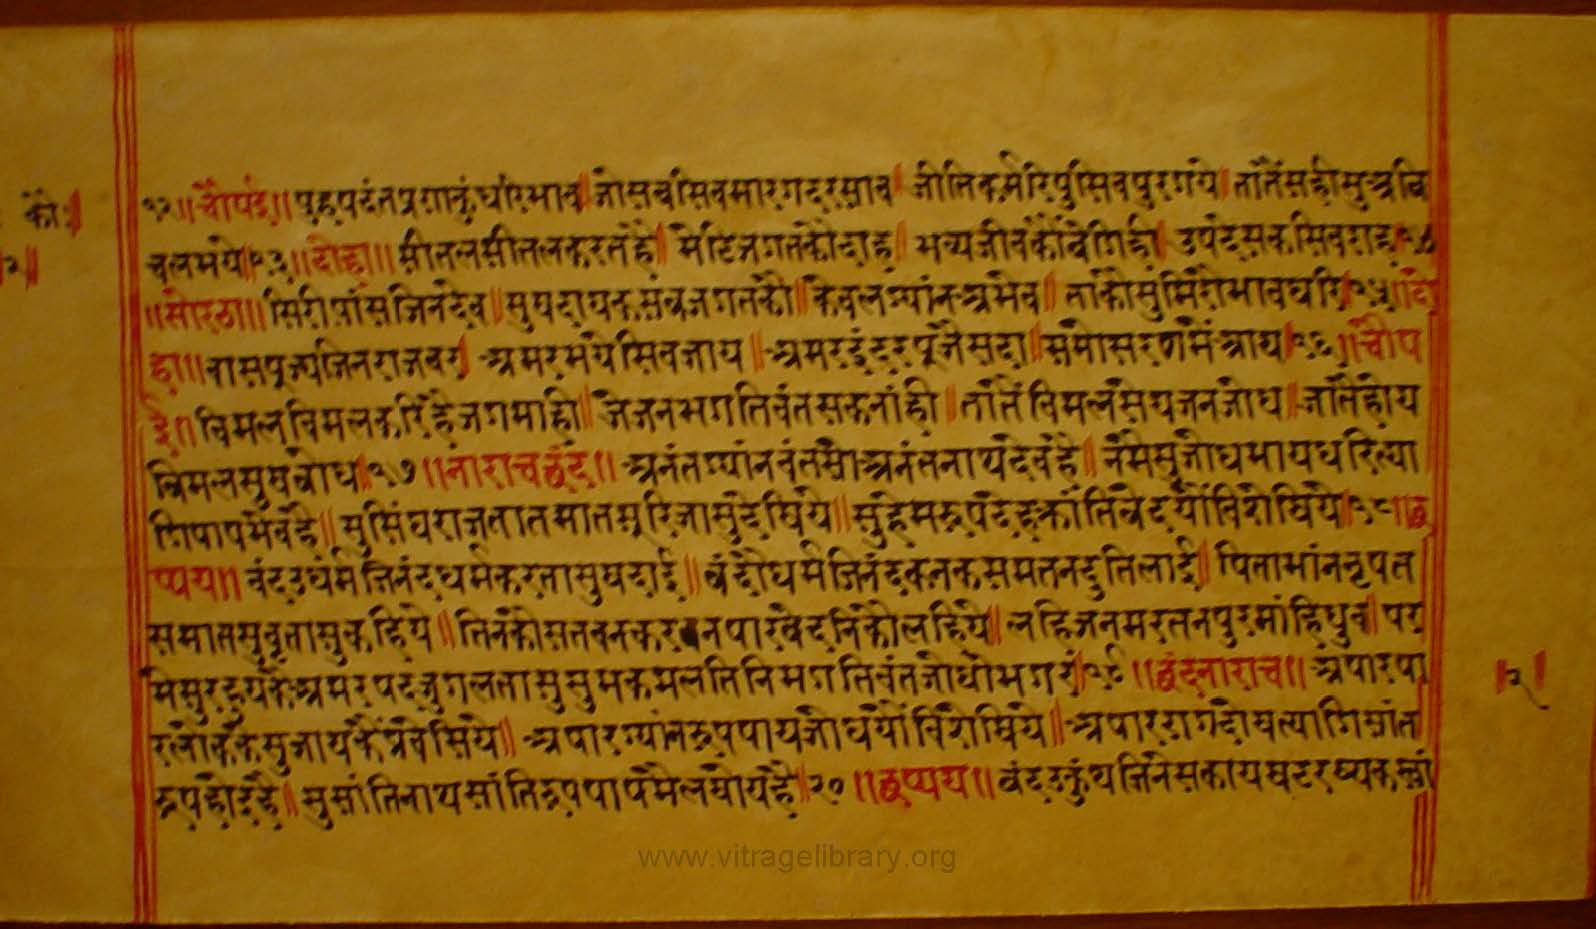 १२॥ चौपई॥ पुहपदंत प्रणाकुं धरि भाव॥ जो सब सिवमारग दरसाव॥ जीति कर्म रिपु सिवपुर गये॥ तातैं सही सु अवि
चल भये॥१३॥ दोहा॥ सीतल सीतल करत है॥ मेटि जगत कौ दाह॥ भव्य जीव कौं वेगि ही॥ उपदेसक सिवराह॥१४
॥सोरठा॥ सिरीयांस जिनदेव॥ सुषदायक सब जगत कौ॥ केवल ग्यांन अभेव॥ ताकौ सुमिरौ भाव धरि॥१५॥ दो
हा॥ वासपूज्य जिनराज वर॥ अमर भये सिव जाय॥ अमर इंदर पूजै सदा॥ समोसरण मैं आय॥१६॥ चौप
ई॥ विमल विमल करि है जग माही॥ जे जन भगतिवंत सक नांही॥ तातैं विमल सेय जन जोध॥ जातै होय
विमल सुष बोध॥१७॥ नाराच छंद॥ अनंत ग्यांनवंत सो अनंतनाथ देव है॥ नमै सु जोध माय धरि त्या
गि पाप भेव है॥ सुसिंघराज तात मात सूरिजा सु देषिये॥ सु हेमरूप देह कांति वेद यौं विशेषिये॥१८॥ छ
प्पय॥ वंदउ धर्म जिनंद धर्म करता सुषदाई॥ वंदौ धर्म जिनंद कनक सम तन दुति लाई॥ पिता भांन नृप त
स मात सुवृता सु कहिये॥ तिनकौ सतवन करन पार वेद नि कौ लहिये॥ लहि जनम रतनपुर मांहि धुव॥ पर
मि सुर दुय के अमर पद जुगल तासु सुभ कमल तिनि भगतिवंत जोधो भगर॥१९॥ छंद नाराच॥ अपार पा
र लोक के सु नायकैं प्रवेसिये॥ अपार ग्यांन रूप पाय जोध यौं विशेषिये॥ अपार राग दोष त्यागि सांत
रूप हो दहै॥ सु सांतिनाथ सांति रूप पाप मैल षोय है॥२०॥ छप्पय॥ वंदउ कुंथ जिनेस काय षट रष्यक स्वां
को॥
२॥
॥२॥
www.vitragelibrary.org